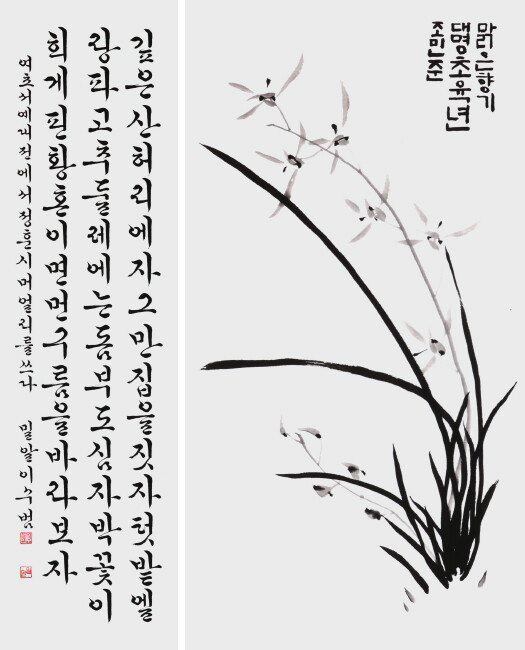 깊은산허리에자그만집을짓자텃밭엘
랑파고추둘레에는돔부도심자박꽃이
희게핀황혼이면먼구름을바라보자
여초서예대전에서정훈시머얼리를쓰다 밀알이수범
맑은향기
대명초육년
조민준